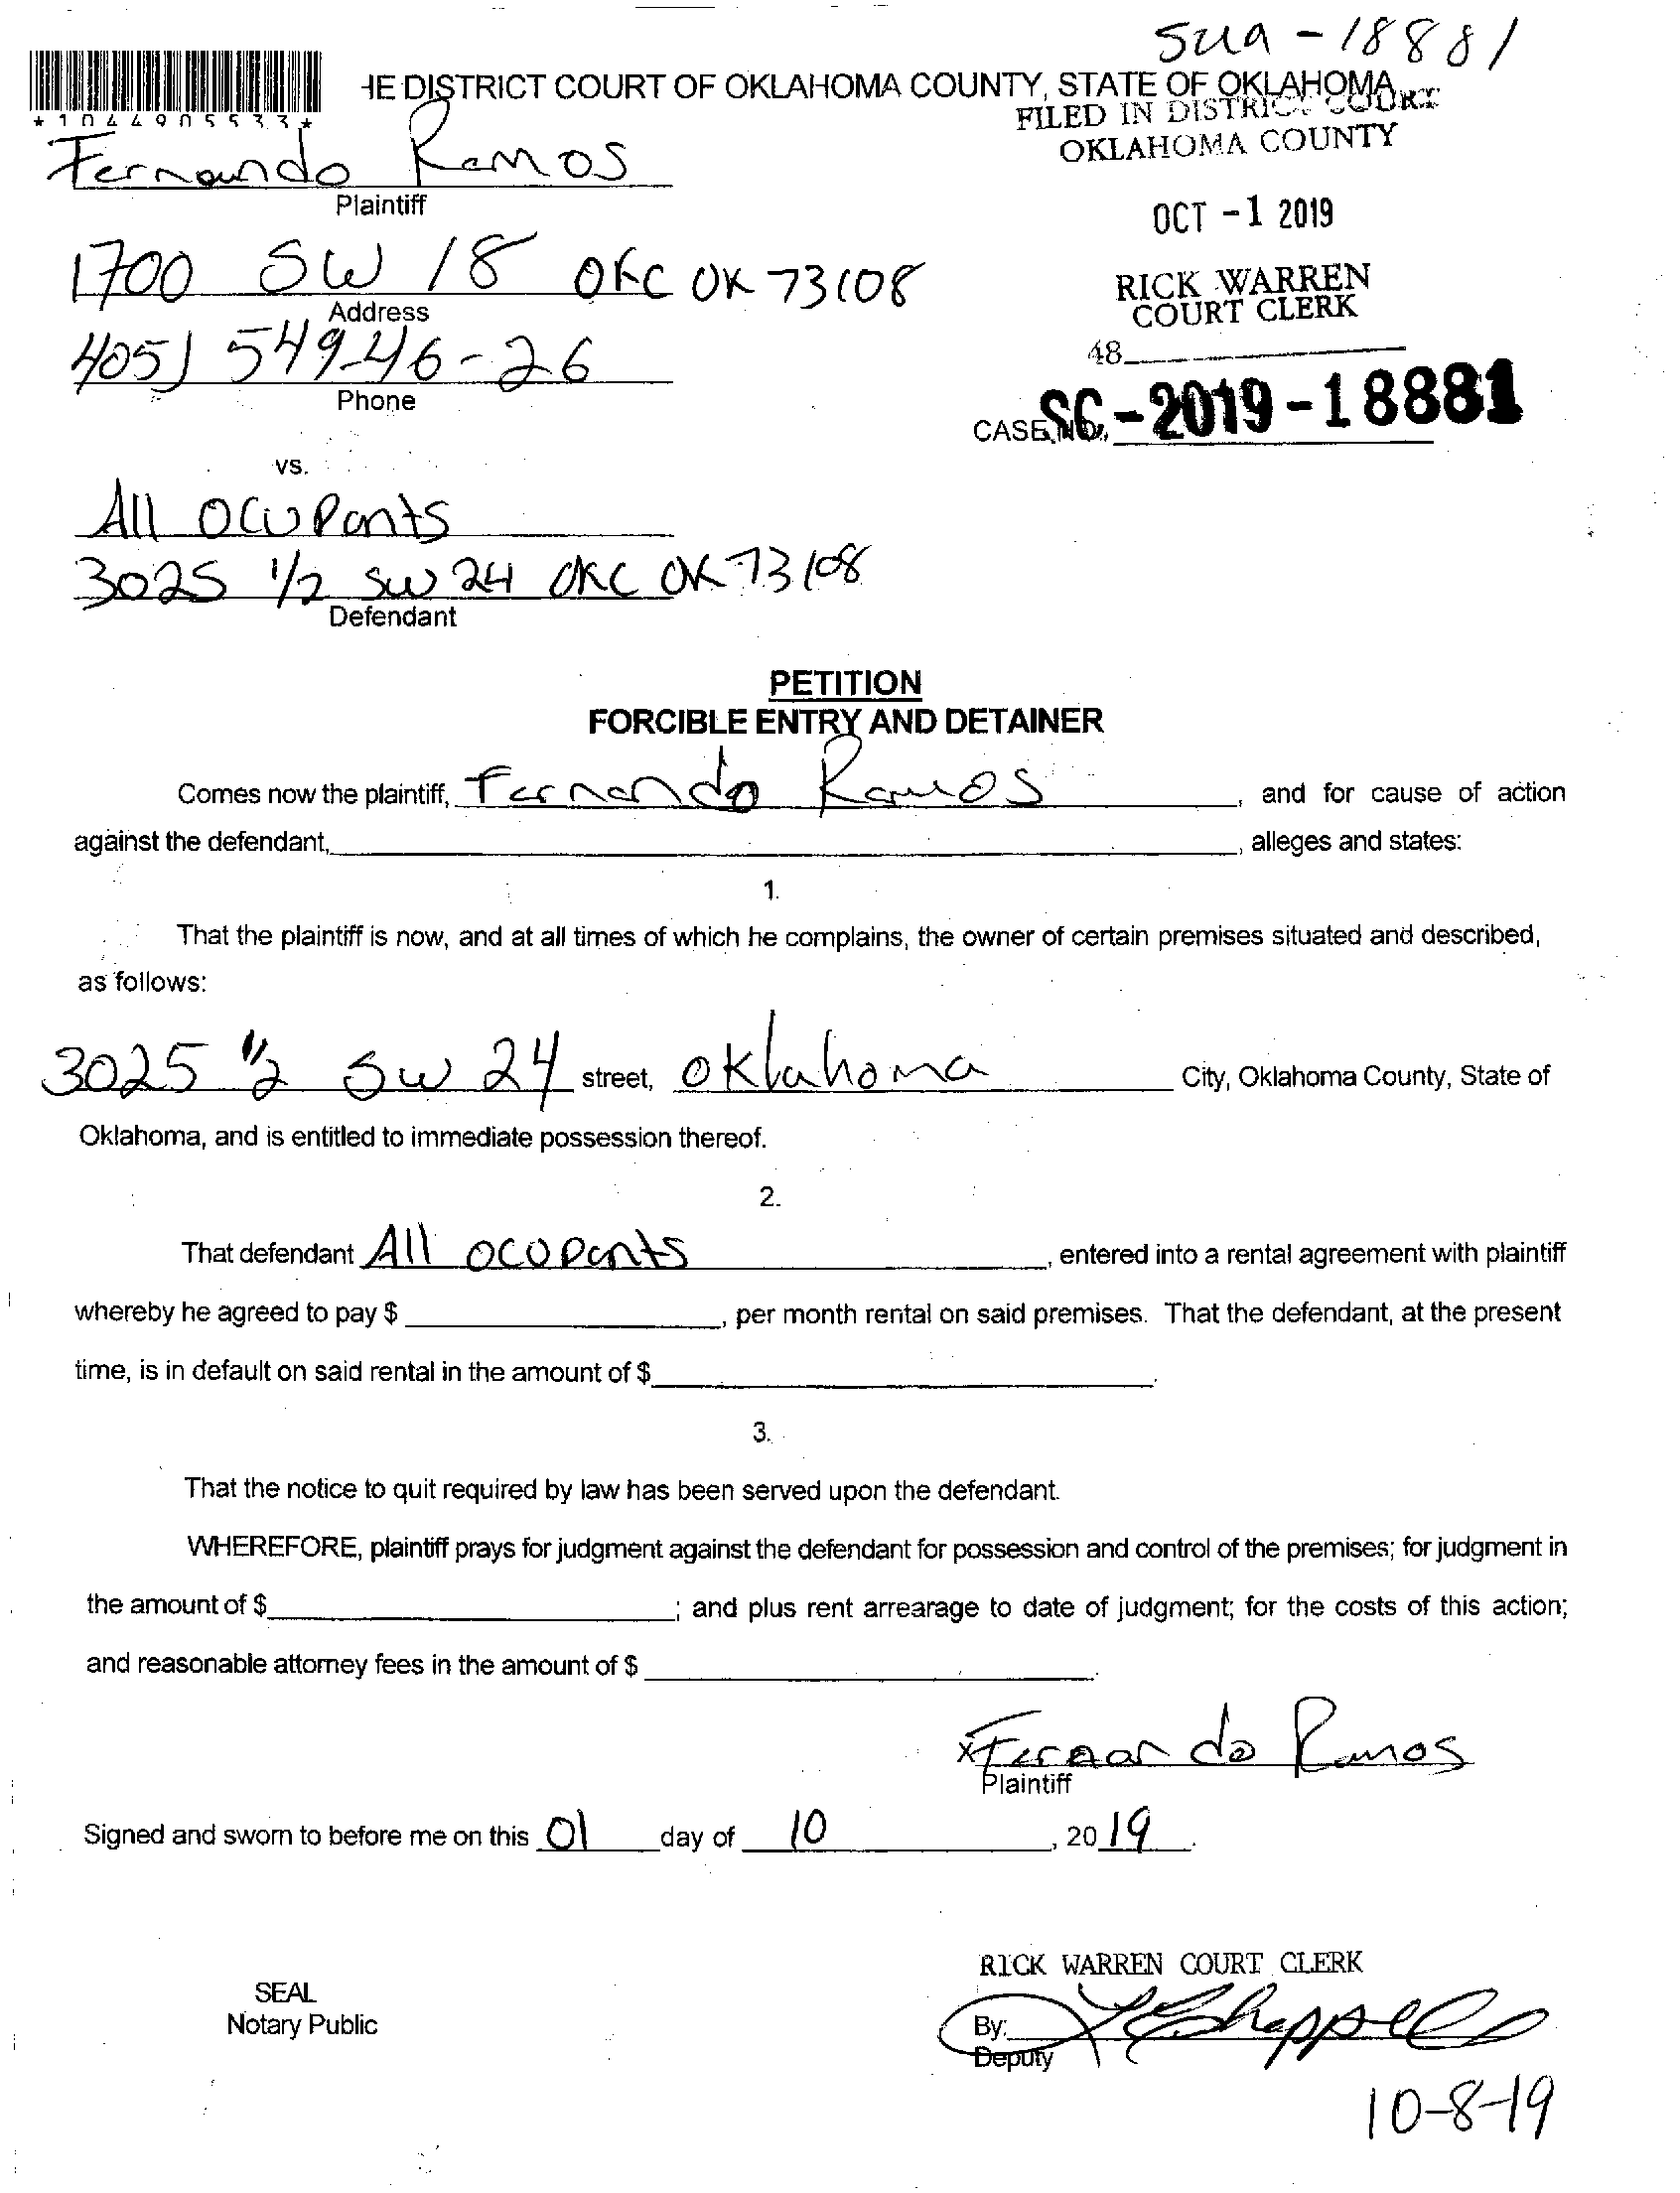 SC-18881
HE DISTRICT COURT OF OKLAHOMA COUNTY, STATE OF OKLAHOMA
*1044905533*
FILED IN DISTRICT COURT
OKLAHOMA COUNTY
Fernando Ramos
Plaintiff
OCT -1 2019
1700 SW 18 OKC OK 73108
Address
RICK WARREN
COURT CLERK
405) 549-46-26
Phone
48
CASE NO. SC-2019-18881
vs.
All Ocupants
3025 1/2 SW 24 OKC OK 73108
Defendant
PETITION
FORCIBLE ENTRY AND DETAINER
Comes now the plaintiff, Fernando Ramos, and for cause of action
against the defendant, , alleges and states:
1.
That the plaintiff is now, and at all times of which he complains, the owner of certain premises situated and described,
as follows:
3025 1/2 SW 24 street, Oklahoma City, Oklahoma County, State of
Oklahoma, and is entitled to immediate possession thereof.
2.
That defendant All ocupants, entered into a rental agreement with plaintiff
whereby he agreed to pay $ , per month rental on said premises. That the defendant, at the present
time, is in default on said rental in the amount of $ .
3.
That the notice to quit required by law has been served upon the defendant.
WHEREFORE, plaintiff prays for judgment against the defendant for possession and control of the premises; for judgment in
the amount of $ ; and plus rent arrearage to date of judgment; for the costs of this action;
and reasonable attorney fees in the amount of $ .
x Fernando Ramos
Plaintiff
Signed and sworn to before me on this 01 day of 10, 20 19.
RICK WARREN COURT CLERK
SEAL
Notary Public
By:
Deputy
10-8-19